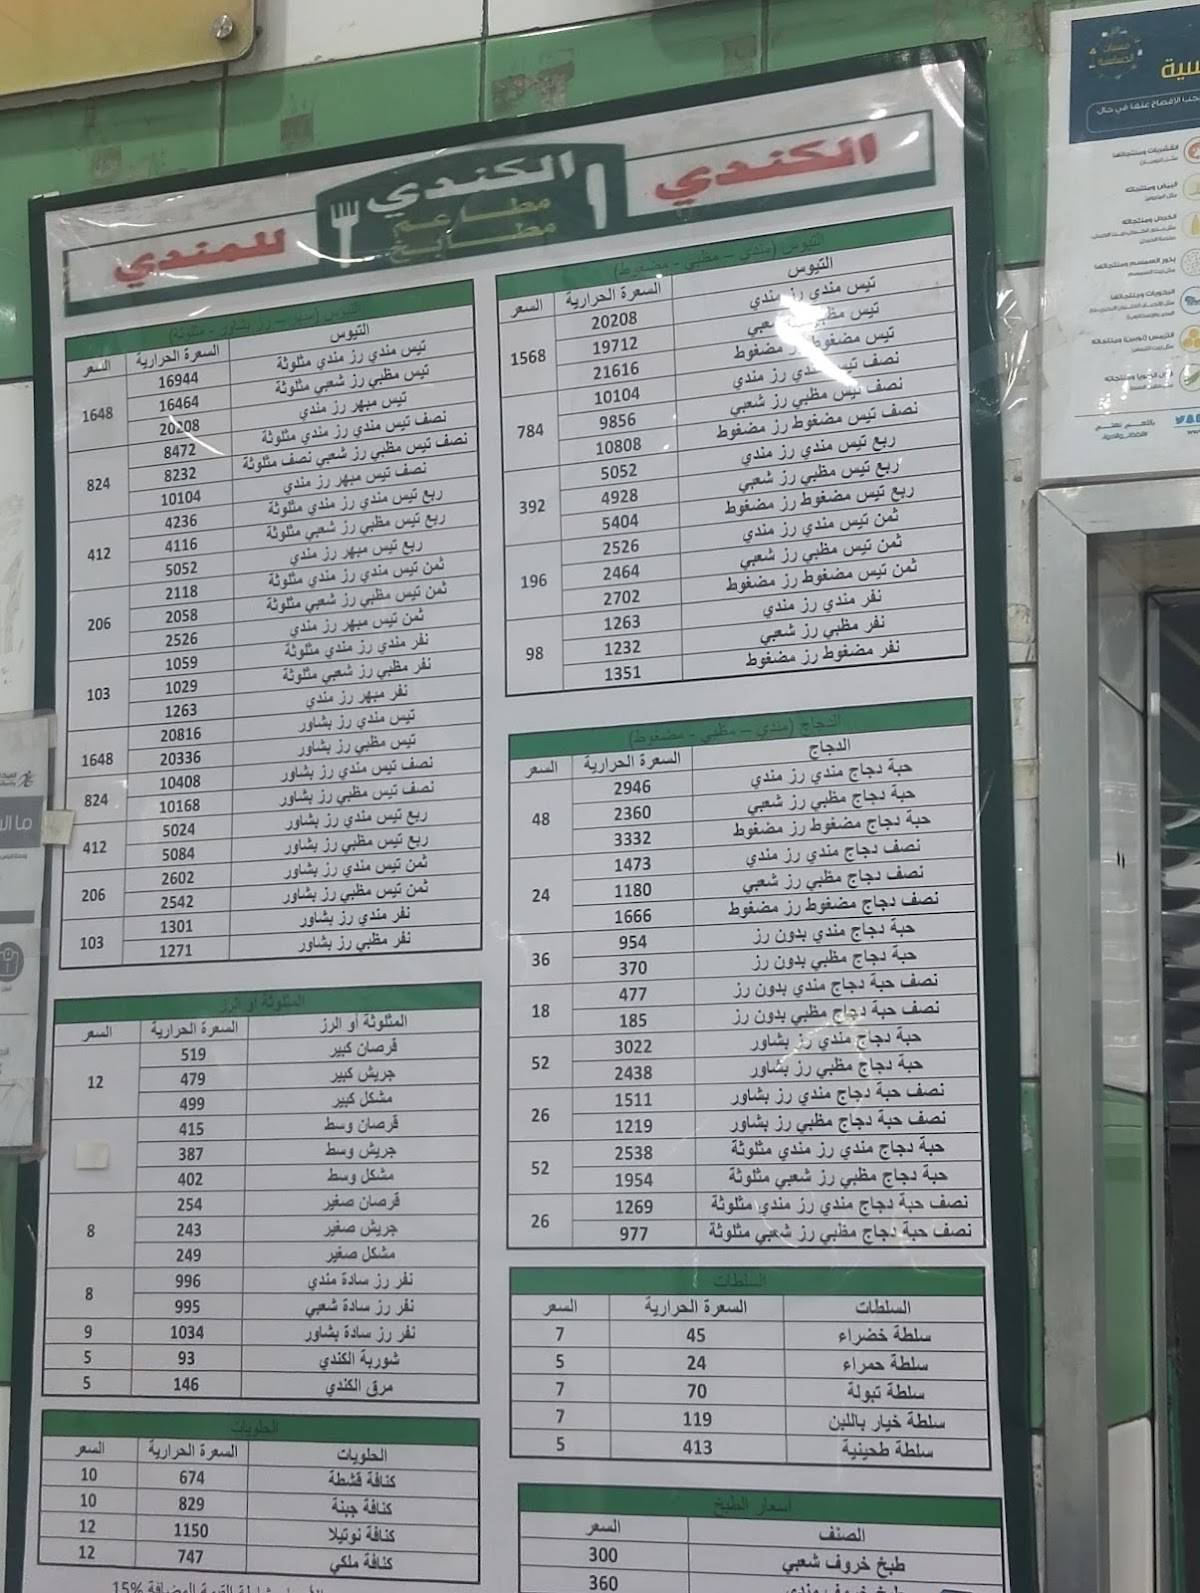 الكندي
الكندي
مطاعم
مطابخ
للمندي
التيوس (مندي – مظبي - مضغوط)
التيوس السعرة الحرارية السعر
تيس مندي رز مندي 20208 1568
تيس مظبي رز شعبي 19712
تيس مضغوط رز مضغوط 21616
نصف تيس مندي رز مندي 10104 784
نصف تيس مظبي رز شعبي 9856
نصف تيس مضغوط رز مضغوط 10808
ربع تيس مندي رز مندي 5052 392
ربع تيس مظبي رز شعبي 4928
ربع تيس مضغوط رز مضغوط 5404
ثمن تيس مندي رز مندي 2526 196
ثمن تيس مظبي رز شعبي 2464
ثمن تيس مضغوط رز مضغوط 2702
نفر مندي رز مندي 1263 98
نفر مظبي رز شعبي 1232
نفر مضغوط رز مضغوط 1351
الدجاج (مندي – مظبي - مضغوط)
الدجاج السعرة الحرارية السعر
حبة دجاج مندي رز مندي 2946 48
حبة دجاج مظبي رز شعبي 2360
حبة دجاج مضغوط رز مضغوط 3332
نصف دجاج مندي رز مندي 1473 24
نصف دجاج مظبي رز شعبي 1180
نصف دجاج مضغوط رز مضغوط 1666
حبة دجاج مندي بدون رز 954 36
حبة دجاج مظبي بدون رز 370
نصف حبة دجاج مندي بدون رز 477 18
نصف حبة دجاج مظبي بدون رز 185
حبة دجاج مندي رز بشاور 3022 52
حبة دجاج مظبي رز بشاور 2438
نصف حبة دجاج مندي رز بشاور 1511 26
نصف حبة دجاج مظبي رز بشاور 1219
حبة دجاج مندي رز مندي مثلوثة 2538 52
حبة دجاج مظبي رز شعبي مثلوثة 1954
نصف حبة دجاج مندي رز مندي مثلوثة 1269 26
نصف حبة دجاج مظبي رز شعبي مثلوثة 977
السلطات
السلطات السعرة الحرارية السعر
سلطة خضراء 45 7
سلطة حمراء 24 5
سلطة تبولة 70 7
سلطة خيار باللبن 119 7
سلطة طحينية 413 5
اسعار الطبخ
الصنف السعر
طبخ خروف شعبي 300
طبخ خروف مندي 360
التيوس (مبهر – رز بشاور - مثلوثة)
التيوس السعرة الحرارية السعر
تيس مندي رز مندي مثلوثة 16944 1648
تيس مظبي رز شعبي مثلوثة 16464
تيس مبهر رز مندي 20208
نصف تيس مندي رز مندي مثلوثة 8472 824
نصف تيس مظبي رز شعبي نصف مثلوثة 8232
نصف تيس مبهر رز مندي 10104
ربع تيس مندي رز مندي مثلوثة 4236 412
ربع تيس مظبي رز شعبي مثلوثة 4116
ربع تيس مبهر رز مندي 5052
ثمن تيس مندي رز مندي مثلوثة 2118 206
ثمن تيس مظبي رز شعبي مثلوثة 2058
ثمن تيس مبهر رز مندي 2526
نفر مندي رز مندي مثلوثة 1059 103
نفر مظبي رز شعبي مثلوثة 1029
نفر مبهر رز مندي 1263
تيس مندي رز بشاور 20816 1648
تيس مظبي رز بشاور 20336
نصف تيس مندي رز بشاور 10408 824
نصف تيس مظبي رز بشاور 10168
ربع تيس مندي رز بشاور 5024 412
ربع تيس مظبي رز بشاور 5084
ثمن تيس مندي رز بشاور 2602 206
ثمن تيس مظبي رز بشاور 2542
نفر مندي رز بشاور 1301 103
نفر مظبي رز بشاور 1271
المثلوثة او الرز
المثلوثة أو الرز السعرة الحرارية السعر
قرصان كبير 519 12
جريش كبير 479
مشكل كبير 499
قرصان وسط 415
جريش وسط 387
مشكل وسط 402
قرصان صغير 254 8
جريش صغير 243
مشكل صغير 249
نفر رز سادة مندي 996 8
نفر رز سادة شعبي 995
نفر رز سادة بشاور 1034 9
شوربة الكندي 93 5
مرق الكندي 146 5
الحلويات
الحلويات السعرة الحرارية السعر
كنافة قشطة 674 10
كنافة جبنة 829 10
كنافة نوتيلا 1150 12
كنافة ملكي 747 12
القيمة المضافة 15%